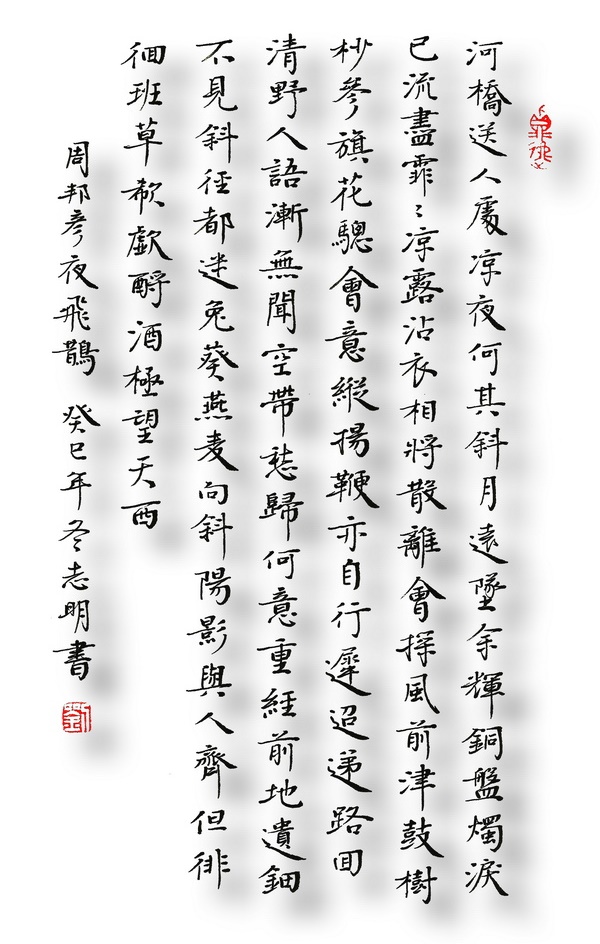 河橋送人處凉夜何其斜月遠墜余輝銅盤燭淚
已流盡霏〻凉露沾衣相將散離會探風前津鼓樹
杪參旗花驄會意縱揚鞭亦自行遲迢递路回
清野人語漸無聞空帶愁歸何意重經前地遺鈿
不見斜徑都迷兔葵燕麦向斜陽影與人齊但徘
徊班草欷歔酹酒極望天西
周邦彦夜飛鵲 癸巳年冬志明書
劉